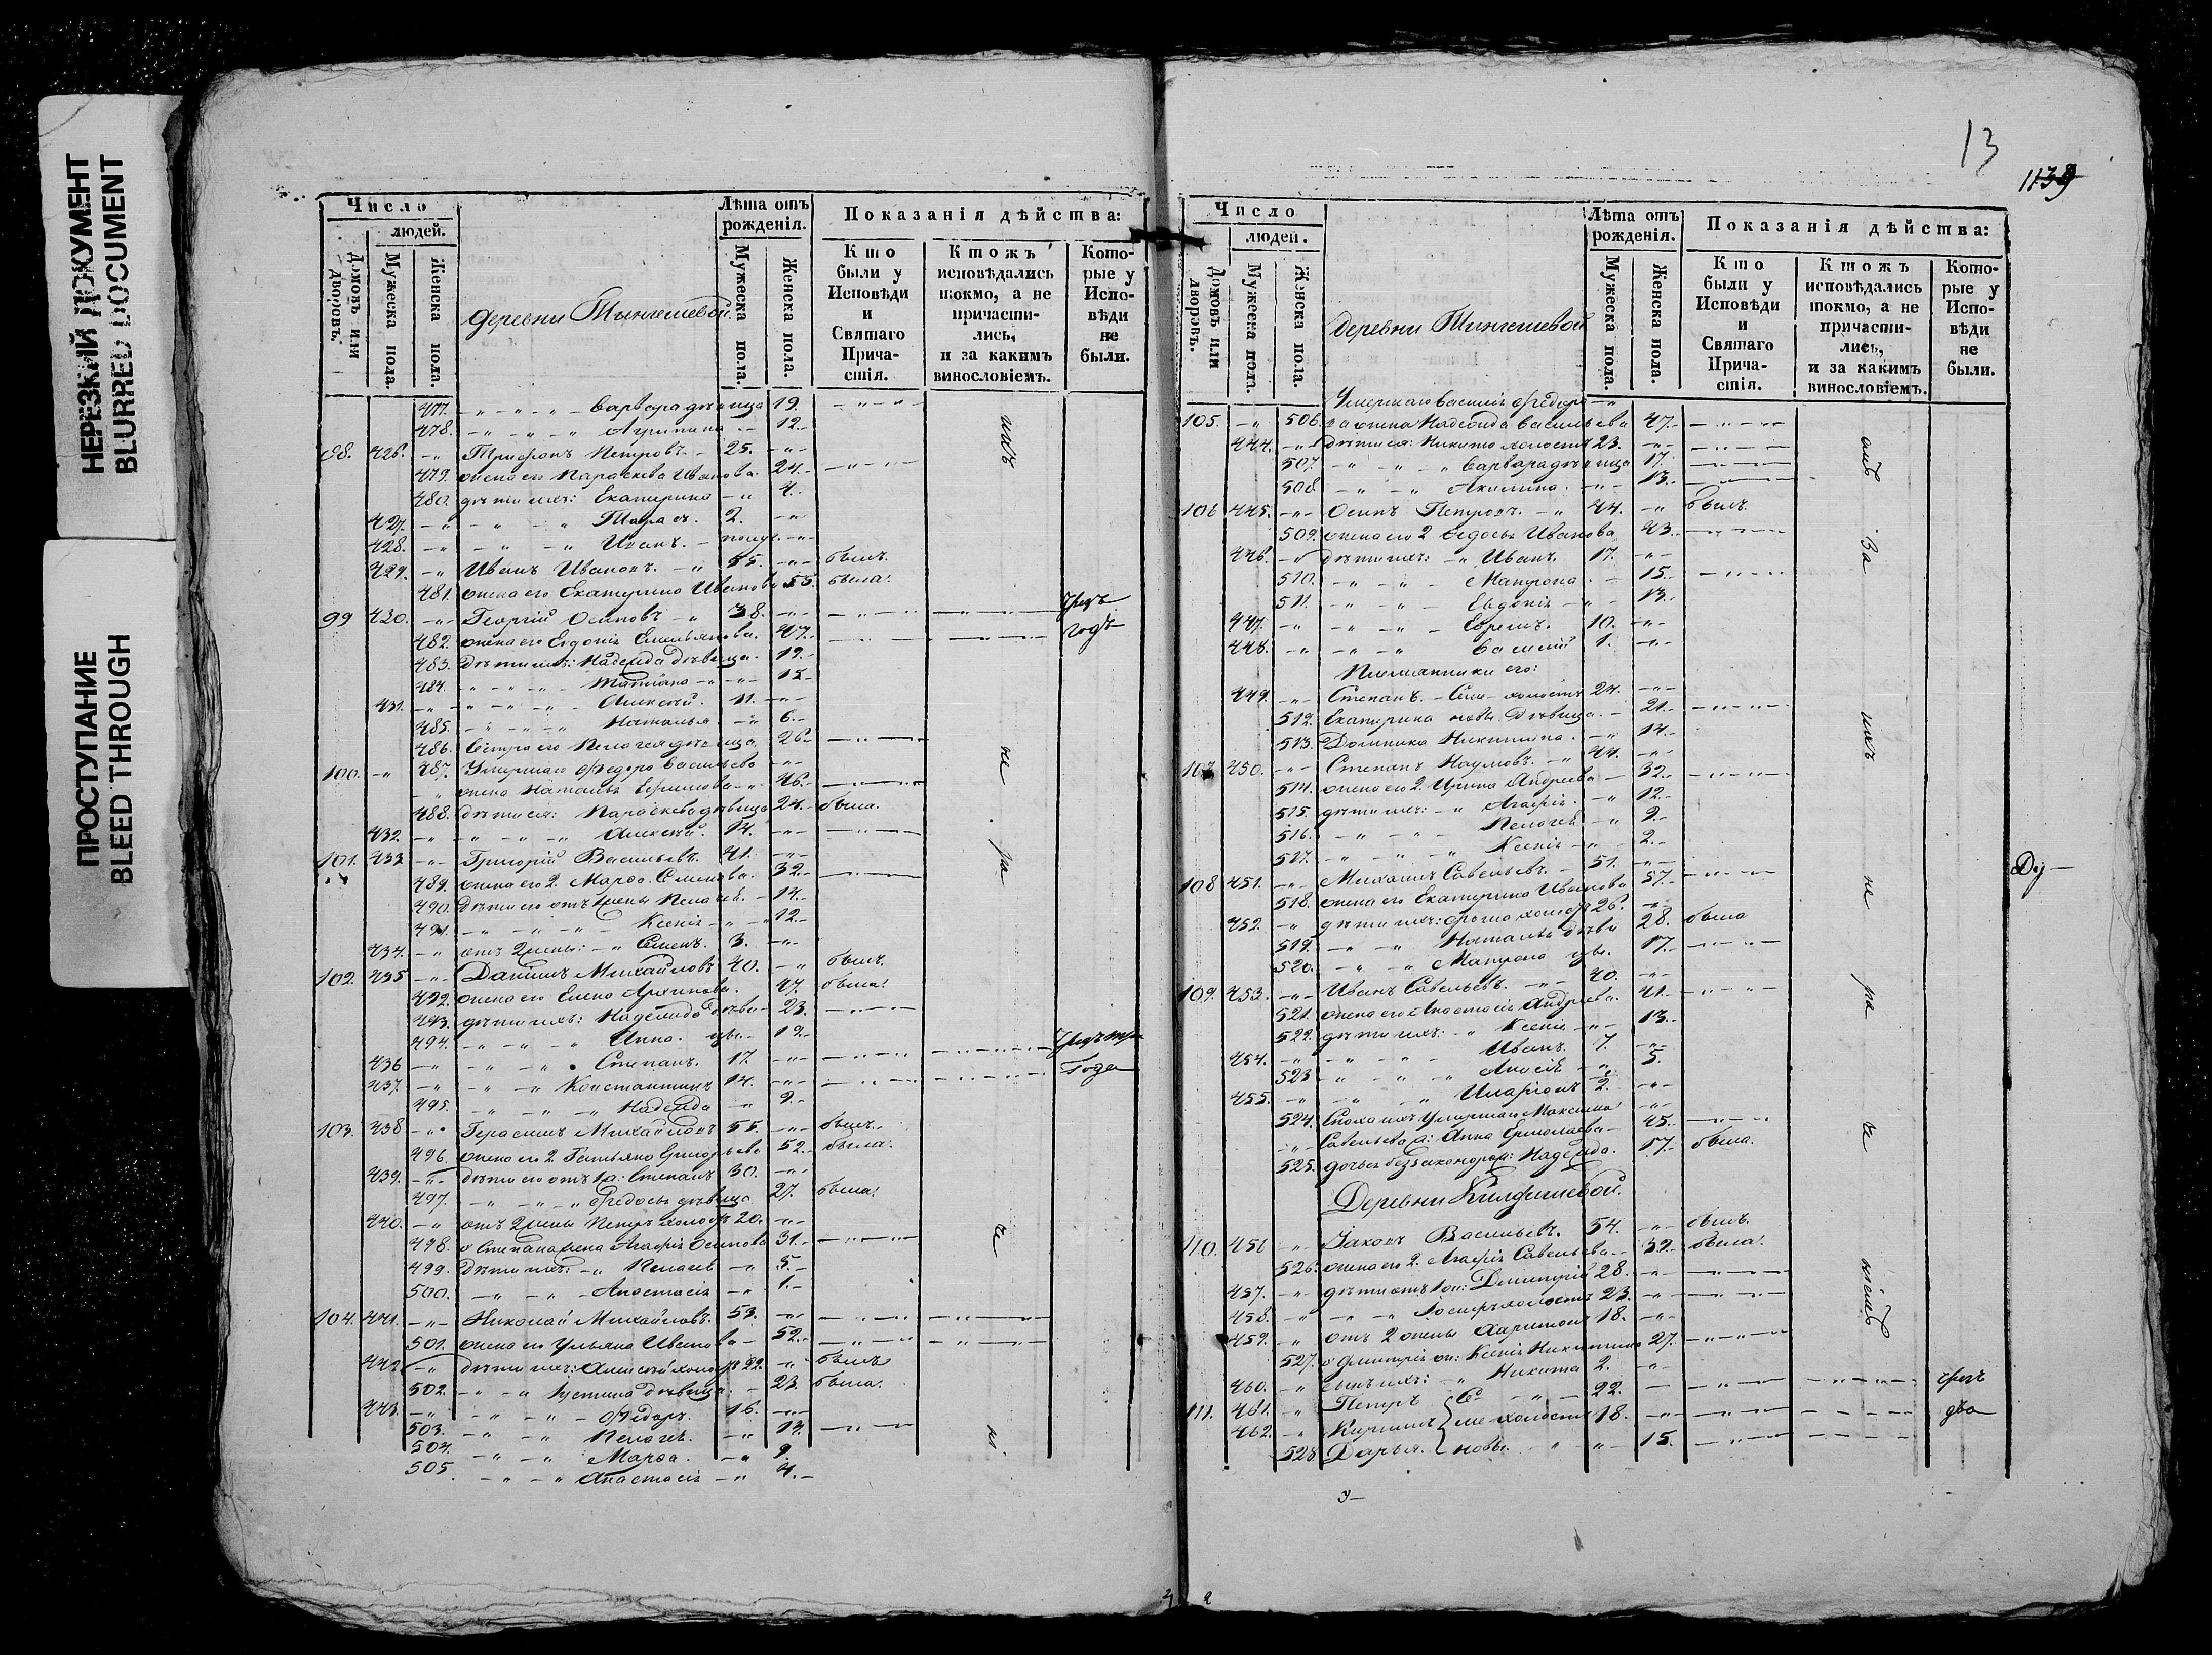 НЕРЕЗКИЙ ДОКУМЕНТ
BLURRED DOCUMENT
ПРОСТУПАНИЕ
BLEED THROUGH
Число
людей.
Домовъ или дворовъ.
Мужеска пола.
Женска пола.
деревни Тынгешевой
Лѣта отъ рожденія.
Мужеска пола.
Женска пола.
Показанія дѣйства:
Кто были у Исповѣди и Святаго Причастія.
Ктожъ исповѣдались токмо, а не причастились, и за какимъ винословіемъ.
Которые у Исповѣди не были.
477. Варвара дѣвица 19.
478. Агрипина 12.
98. 426. Трифонъ Петровъ. 25.
479. жена его Параскева Иванова. 24.
480. дѣти ихъ: Екатерина 4.
427. Тарасъ. 2.
428. Иванъ.
429. Иванъ Ивановъ. 55. былъ.
481. жена его Екатерина Иванова 55. была.
99 430. Георгій Осиповъ 38. чрезъ
482. жена его Евдокія Емельянова. 47. годъ
483. Дѣти ихъ: Надежда дѣвица. 19.
484. Татіана 15.
431. Алексѣй. 11.
485. Наталья. 6.
486. Сестра его Пелагея дѣвица 26.
100. 487. Умершаго Федора Васильева
жена Наталья Ефимова 46.
488. дѣти ея: Параскева дѣвица 24. была.
432. Алексѣй. 14.
101. 433. Григорій Васильевъ. 41.
489. жена его 2. Марфа Семенова. 32.
490. Дѣти его отъ 1 жены Пелагея. 14.
491. Ксенія 12.
434. отъ 2 жены: Семенъ. 3.
102. 435 Даніилъ Михайловъ 40. былъ.
492. жена его Елена Архипова. 47. была.
493. дѣти ихъ: Надежда дѣва 23.
494. Анна. дѣв. 19.
436 Степанъ. 17. чрезъ три
437. Константинъ 14. года
495. Надежда 9.
103. 438 Герасимъ Михайловъ 55. былъ.
496. жена его 2 Татьяна Григорьева 52. была.
439. дѣти его отъ 1 ж: Степанъ 30.
497. Федосья дѣвица 27. была.
440. отъ 2 жены Петръ холостъ 20.
498. у Степана жена Агафія Осипова 31.
499. Дѣти ихъ: Пелагея 5.
500. Анастасія 1.
104. 441. Николай Михайловъ. 53.
501. жена его Ульяна Иванова 52.
442. дѣти ихъ: Алексѣй холостъ 22. былъ
502. Іустина дѣвица. 23. была.
443. Федоръ. 16.
503. Пелагея. 14.
504. Марфа. 9
505. Анастасія 4.
ихъ
не
ра
че
ні
13
1139
Число
людей.
Домовъ или дворовъ.
Мужеска пола.
Женска пола.
деревни Тынгешевой
Лѣта отъ рожденія.
Мужеска пола.
Женска пола.
Показанія дѣйства:
Кто были у Исповѣди и Святаго Причастія.
Ктожъ исповѣдались токмо, а не причастились, и за какимъ винословіемъ.
Которые у Исповѣди не были.
Умершаго Василія Федорова
105. 506. жена Надежда Васильева 47.
444. дѣти ея: Никита холостъ 23.
507. Варвара дѣвица 17.
508 Акилина. 13.
106 445. Осипъ Петровъ. 44. былъ.
509. жена его 2 Федосья Иванова 43.
446. дѣти ихъ: Иванъ. 17.
510. Матрона. 15.
511. Евдокія 13.
447. Ефремъ. 10.
448. Василій 1.
Племянники его:
449. Степанъ. Семе холостъ 24.
512. Екатерина новы дѣвица. 21.
513. Домника Никитина. 14.
107 450. Степанъ Наумовъ. 44.
514. жена его 2. Ирина Андреева 32.
515. дѣти ихъ: Агафія. 12.
516. Пелагея 9.
517. Ксенія 2.
108 451. Михаилъ Савельевъ. 51.
518. жена его Екатерина Иванова 57.
452. дѣти ихъ: холостъ 26.
519. Наталья дѣва 28. была
520. Матрона дѣв. 17.
109. 453. Иванъ Савельевъ. 40.
521. жена его Анастасія Андреева. 41.
522. дѣти ихъ: Ксенія 13.
454. Иванъ 7.
523 5.
455. Иларіонъ 2.
524. Сноха ихъ умершаго Максима
Савельева ж: Анна Ермолаева 45.
525. дочь ея беззаконорож: Надежда. 17. была.
Деревни Килдишевой.
110. 456 Іаковъ Васильевъ. 54. былъ.
526. жена его 2. Агафія Савельева 39. была.
457. дѣти отъ 1 ж: Димитрій 28.
458. Іосифъ холостъ 23.
459. отъ 2 жены Харитонъ 18.
527. у Димитрія ж: Ксенія Никитина 27.
460. сынъ ихъ: Никита 2.
111. 461. Петръ Се 22. чрезъ
462. Кириллъ ме холостъ 18. два
528. Дарья. новы 15.
онъ
за
ихъ
не
ра
че
ніемъ
Ду-